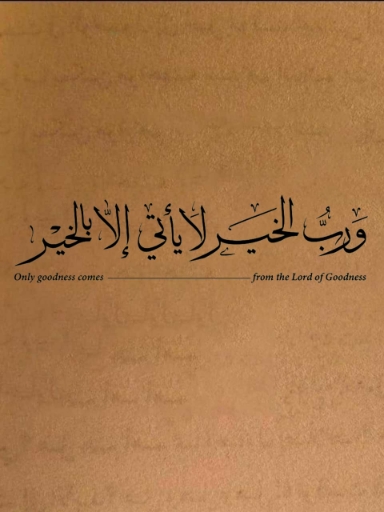 وَرَبُّ الخَيْر لَا يَأْتي إلّا بالخَيْر
Only goodness comes from the Lord of Goodness